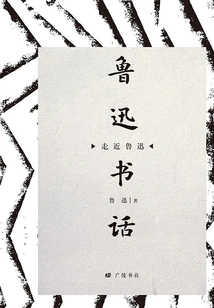 鲁迅书话
走近鲁迅
鲁迅|著
广陵书社